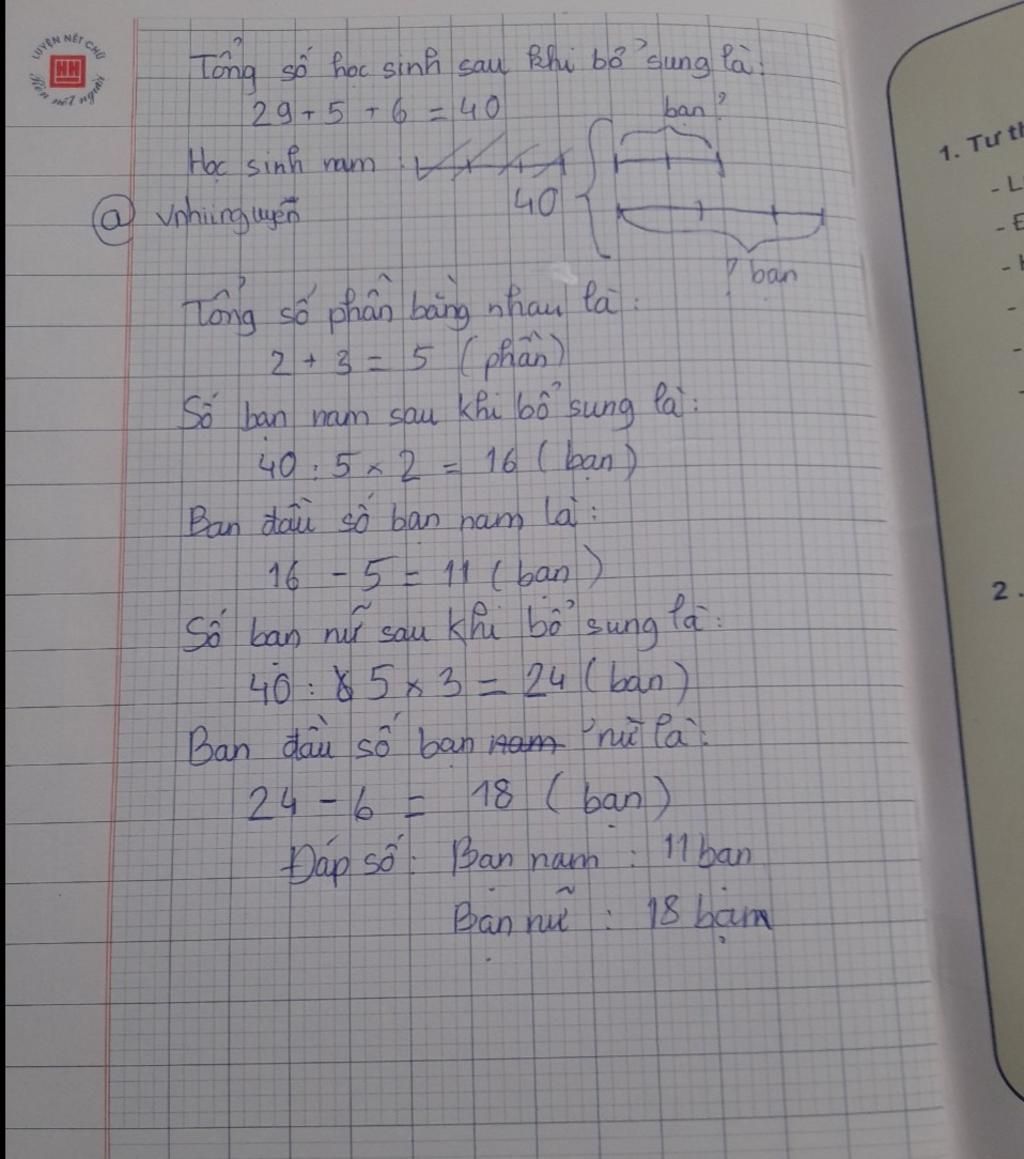 LUYỆN NÉT CHỮ
HN
Rèn nết người
Tổng số học sinh sau khi bổ sung là:
29 + 5 + 6 = 40
Học sinh nam :
bạn?
40
@ vnhiinguyen
? bạn
Tổng số phần bằng nhau là :
2 + 3 = 5 (phần)
Số bạn nam sau khi bổ sung là :
40 : 5 × 2 = 16 (bạn)
Ban đầu số bạn nam là :
16 - 5 = 11 (bạn)
Số bạn nữ sau khi bổ sung là :
40 : 5 × 3 = 24 (bạn)
Ban đầu số bạn nam nữ là :
24 - 6 = 18 (bạn)
Đáp số : Bạn nam : 11 bạn
Bạn nữ : 18 bạn
1. Tư th
- L
- E
2.